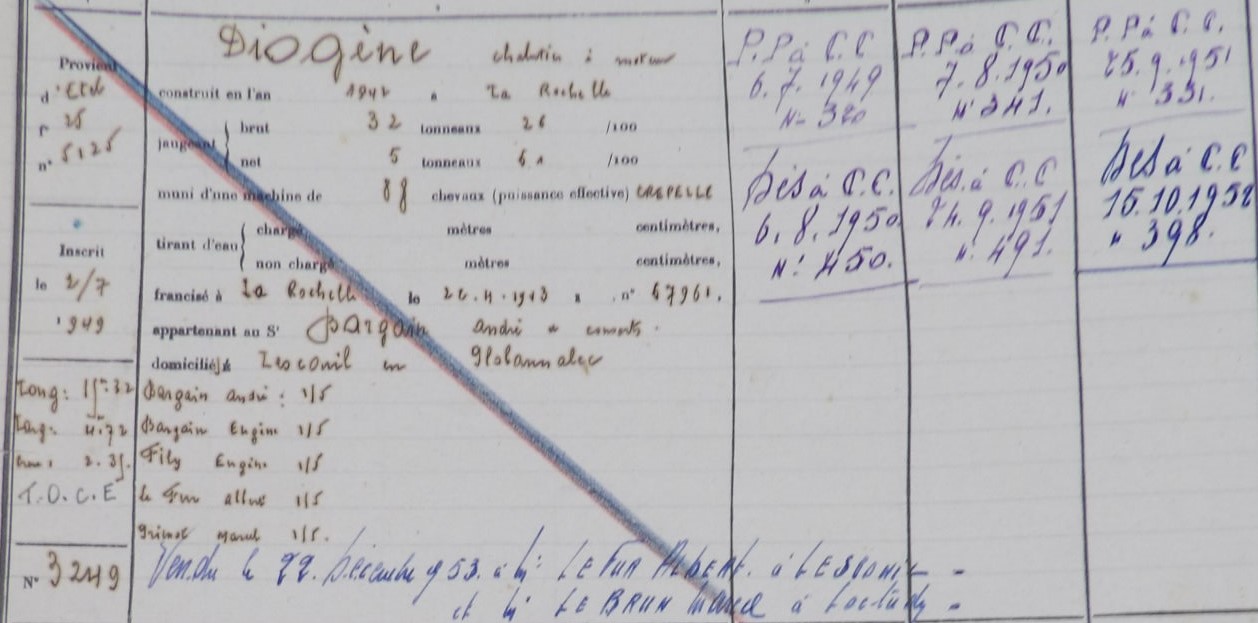 Provient
d'Etel
f° 25
n° 5125
Inscrit
le 2/7
1949
Long: 15m32
Larg: 4.72
2.35.
T.O.C.E
N° 3249
Diogène chalutier à moteur
construit en l'an 1942 à La Rochelle
jaugeant { brut 32 tonneaux 26 /100
net 5 tonneaux 61 /100
muni d'une machine de 88 chevaux (puissance effective) CREPELLE
tirant d'eau { chargé mètres centimètres,
non chargé mètres centimètres,
francisé à La Rochelle le n° 47961.
appartenant au Sr Bargain André & consorts.
domicilié à Lesconil en Plobannalec
Bargain André : 1/5
Bargain Eugène 1/5
Fily Eugène 1/5
Le Fur 1/5
Marcel 1/5.
Vendu le 22. Décembre 1953. à Mr LE FUR ALBERT. à LESCONIL -
et Mr LE BRUN Marcel à Loctudy -
P.P à C.C
6.7.1949
N° 320
Dés à C.C.
6.8.1950.
N° 450.
P.P à C.C.
7.8.1950
N° 341.
Dés. à C.C
24.9.1951
N° 491.
P.P à C.C.
25.9.1951
N° 331.
Dés à C.C
15.10.1952
N 398.